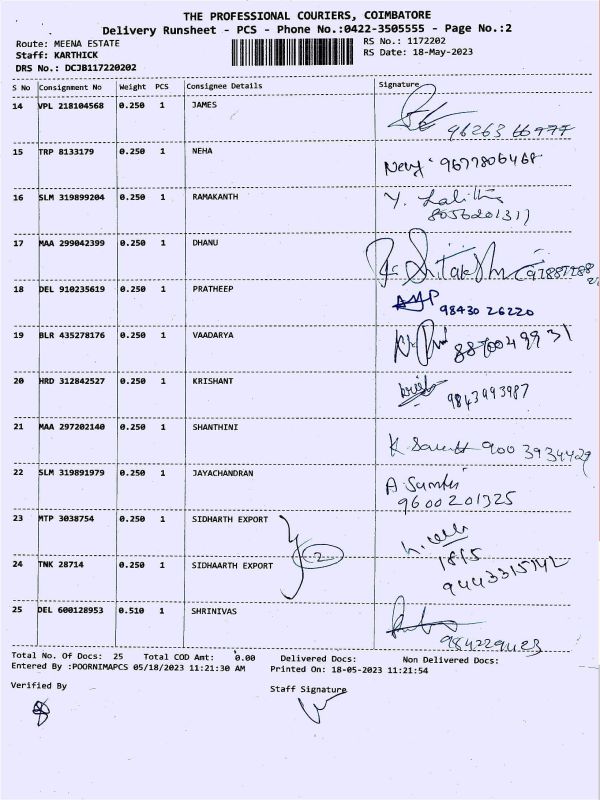 THE PROFESSIONAL COURIERS, COIMBATORE
Delivery Runsheet - PCS - Phone No.:0422-3505555 - Page No.:2
Route: MEENA ESTATE RS No.: 1172202
Staff: KARTHICK RS Date: 18-May-2023
DRS No.: DCJB117220202
S No Consignment No Weight PCS Consignee Details Signature
14 VPL 218104568 0.250 1 JAMES
15 TRP 8133179 0.250 1 NEHA 9677806468
16 SLM 319899204 0.250 1 RAMAKANTH Y. Lalitha
8056201317
17 MAA 299042399 0.250 1 DHANU
18 DEL 910235619 0.250 1 PRATHEEP
98430 26220
19 BLR 435278176 0.250 1 VAADARYA
20 HRD 312842527 0.250 1 KRISHANT
9843993987
21 MAA 297202140 0.250 1 SHANTHINI
9003934429
22 SLM 319891979 0.250 1 JAYACHANDRAN
9600201325
23 MTP 3038754 0.250 1 SIDHARTH EXPORT
2
24 TNK 28714 0.250 1 SIDHAARTH EXPORT
25 DEL 600128953 0.510 1 SHRINIVAS
Total No. Of Docs: 25 Total COD Amt: 0.00 Delivered Docs: Non Delivered Docs:
Entered By :POORNIMAPCS 05/18/2023 11:21:30 AM Printed On: 18-05-2023 11:21:54
Verified By Staff Signature